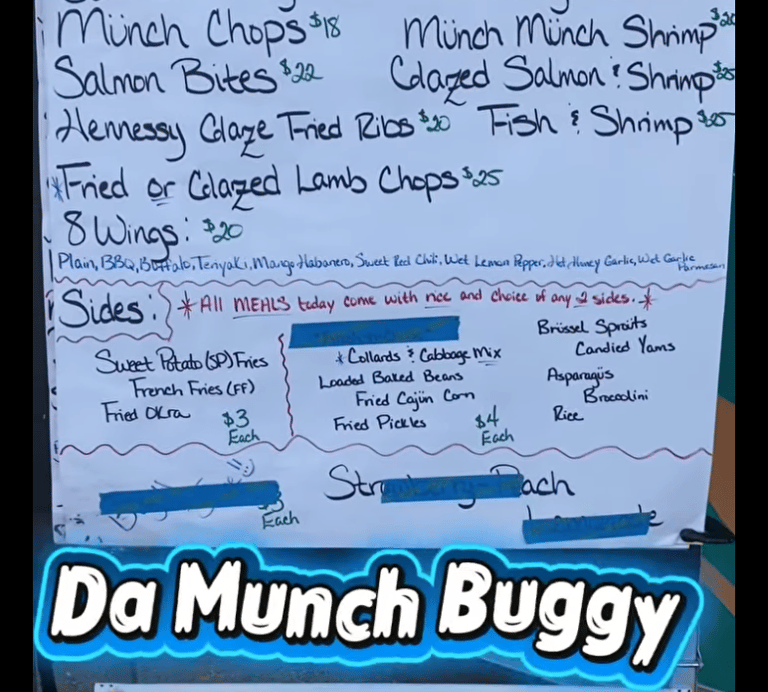 Münch Chops $18
Münch Münch Shrimp $20
Salmon Bites $22
Glazed Salmon & Shrimp $25
Hennessy Glaze Fried Ribs $20
Fish & Shrimp $25
*Fried or Glazed Lamb Chops $25
8 Wings: $20
Plain, BBQ, Buffalo, Teriyaki, Mango Habanero, Sweet Red Chili, Wet Lemon Pepper, Hot, Honey Garlic, Wet Garlic Parmesan
Sides: *All MEALS today come with rice and choice of any 2 sides.*
Sweet Potato (SP) Fries
French Fries (FF)
Fried Okra
$3
Each
*Collards & Cabbage Mix
Loaded Baked Beans
Fried Cajün Corn
Fried Pickles
$4
Each
Brüssel Sprouts
Candied Yams
Asparagüs
Broccolini
Rice
$3
Each
Strawberry-Peach
Lemonade
Da Munch Buggy